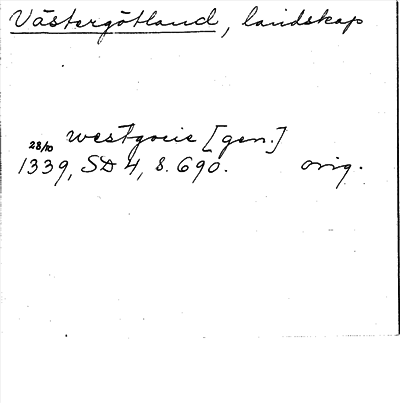 Västergötland, landskap
westgocie [gen.]
28/10 1339, SD 4, s. 690. orig.